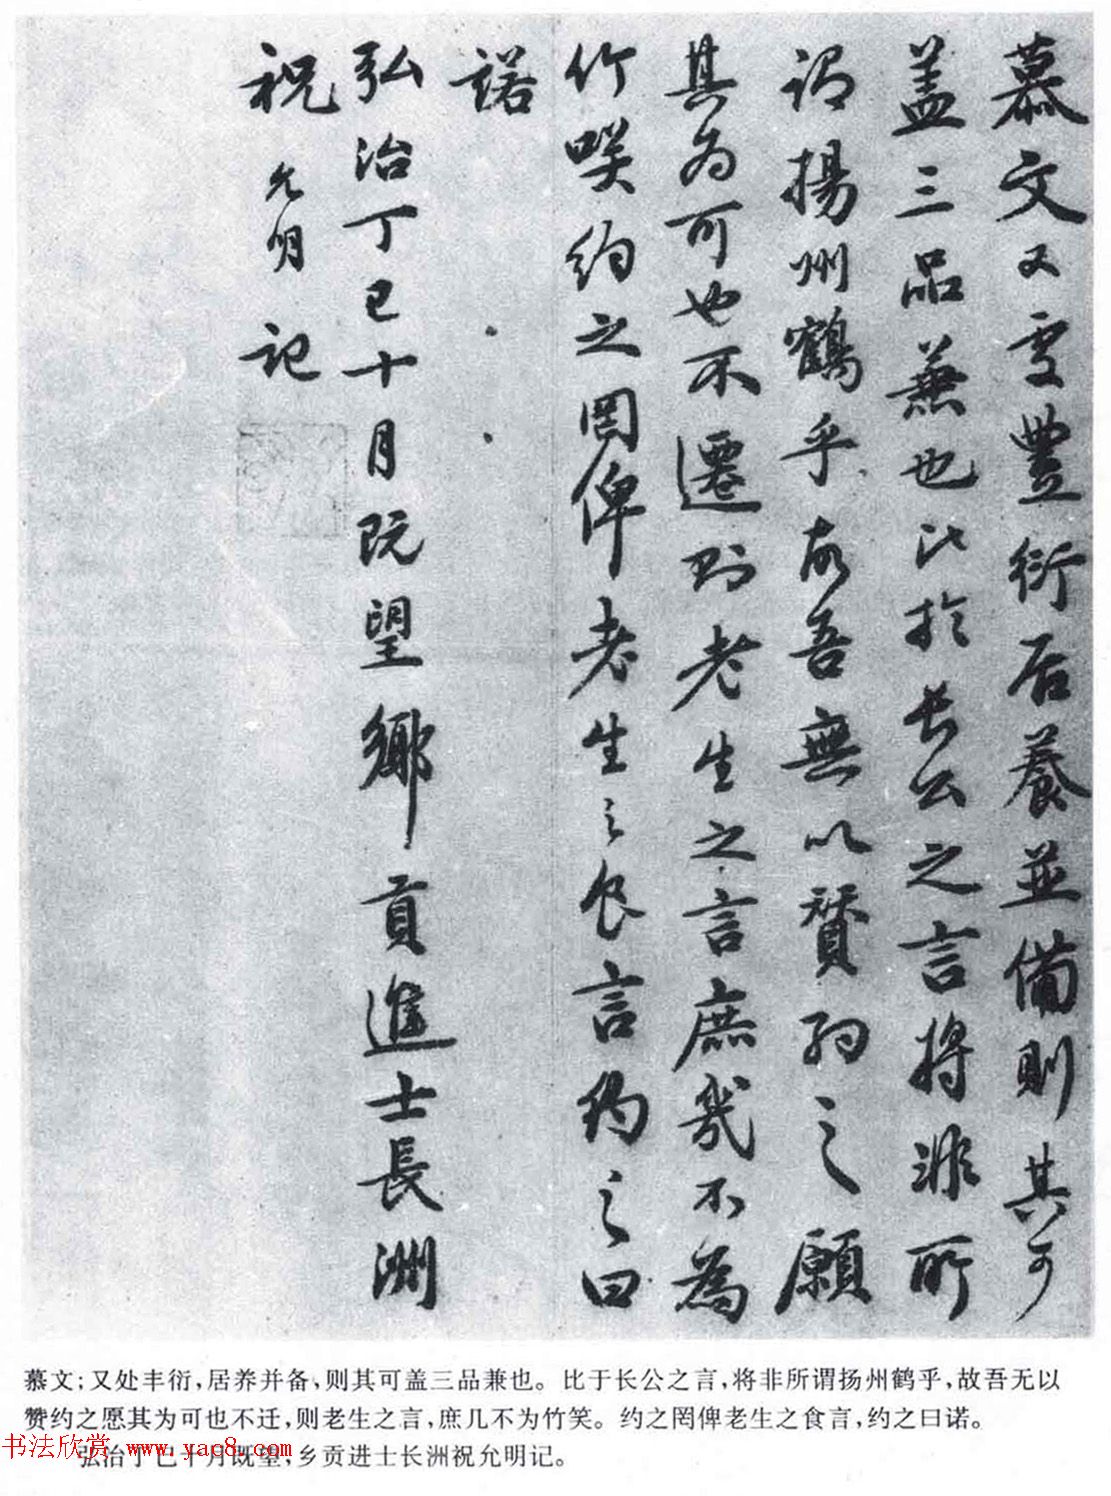 慕文又處豐衍居養並備則其可
盖三品兼也比於長公之言將非所
謂揚州鶴乎故吾無以贊約之願
其為可也不遷則老生之言庶幾不為
竹咲約之罔俾老生之食言約之曰
諾
弘治丁巳十月既望鄉貢進士長洲
祝允明記
慕文；又处丰衍，居养并备，则其可盖三品兼也。比于长公之言，将非所谓扬州鹤乎，故吾无以
赞约之愿其为可也不迁，则老生之言，庶几不为竹笑。约之罔俾老生之食言，约之曰诺。
弘治丁巳十月既望，乡贡进士长洲祝允明记。
书法欣赏 www.yac8.com